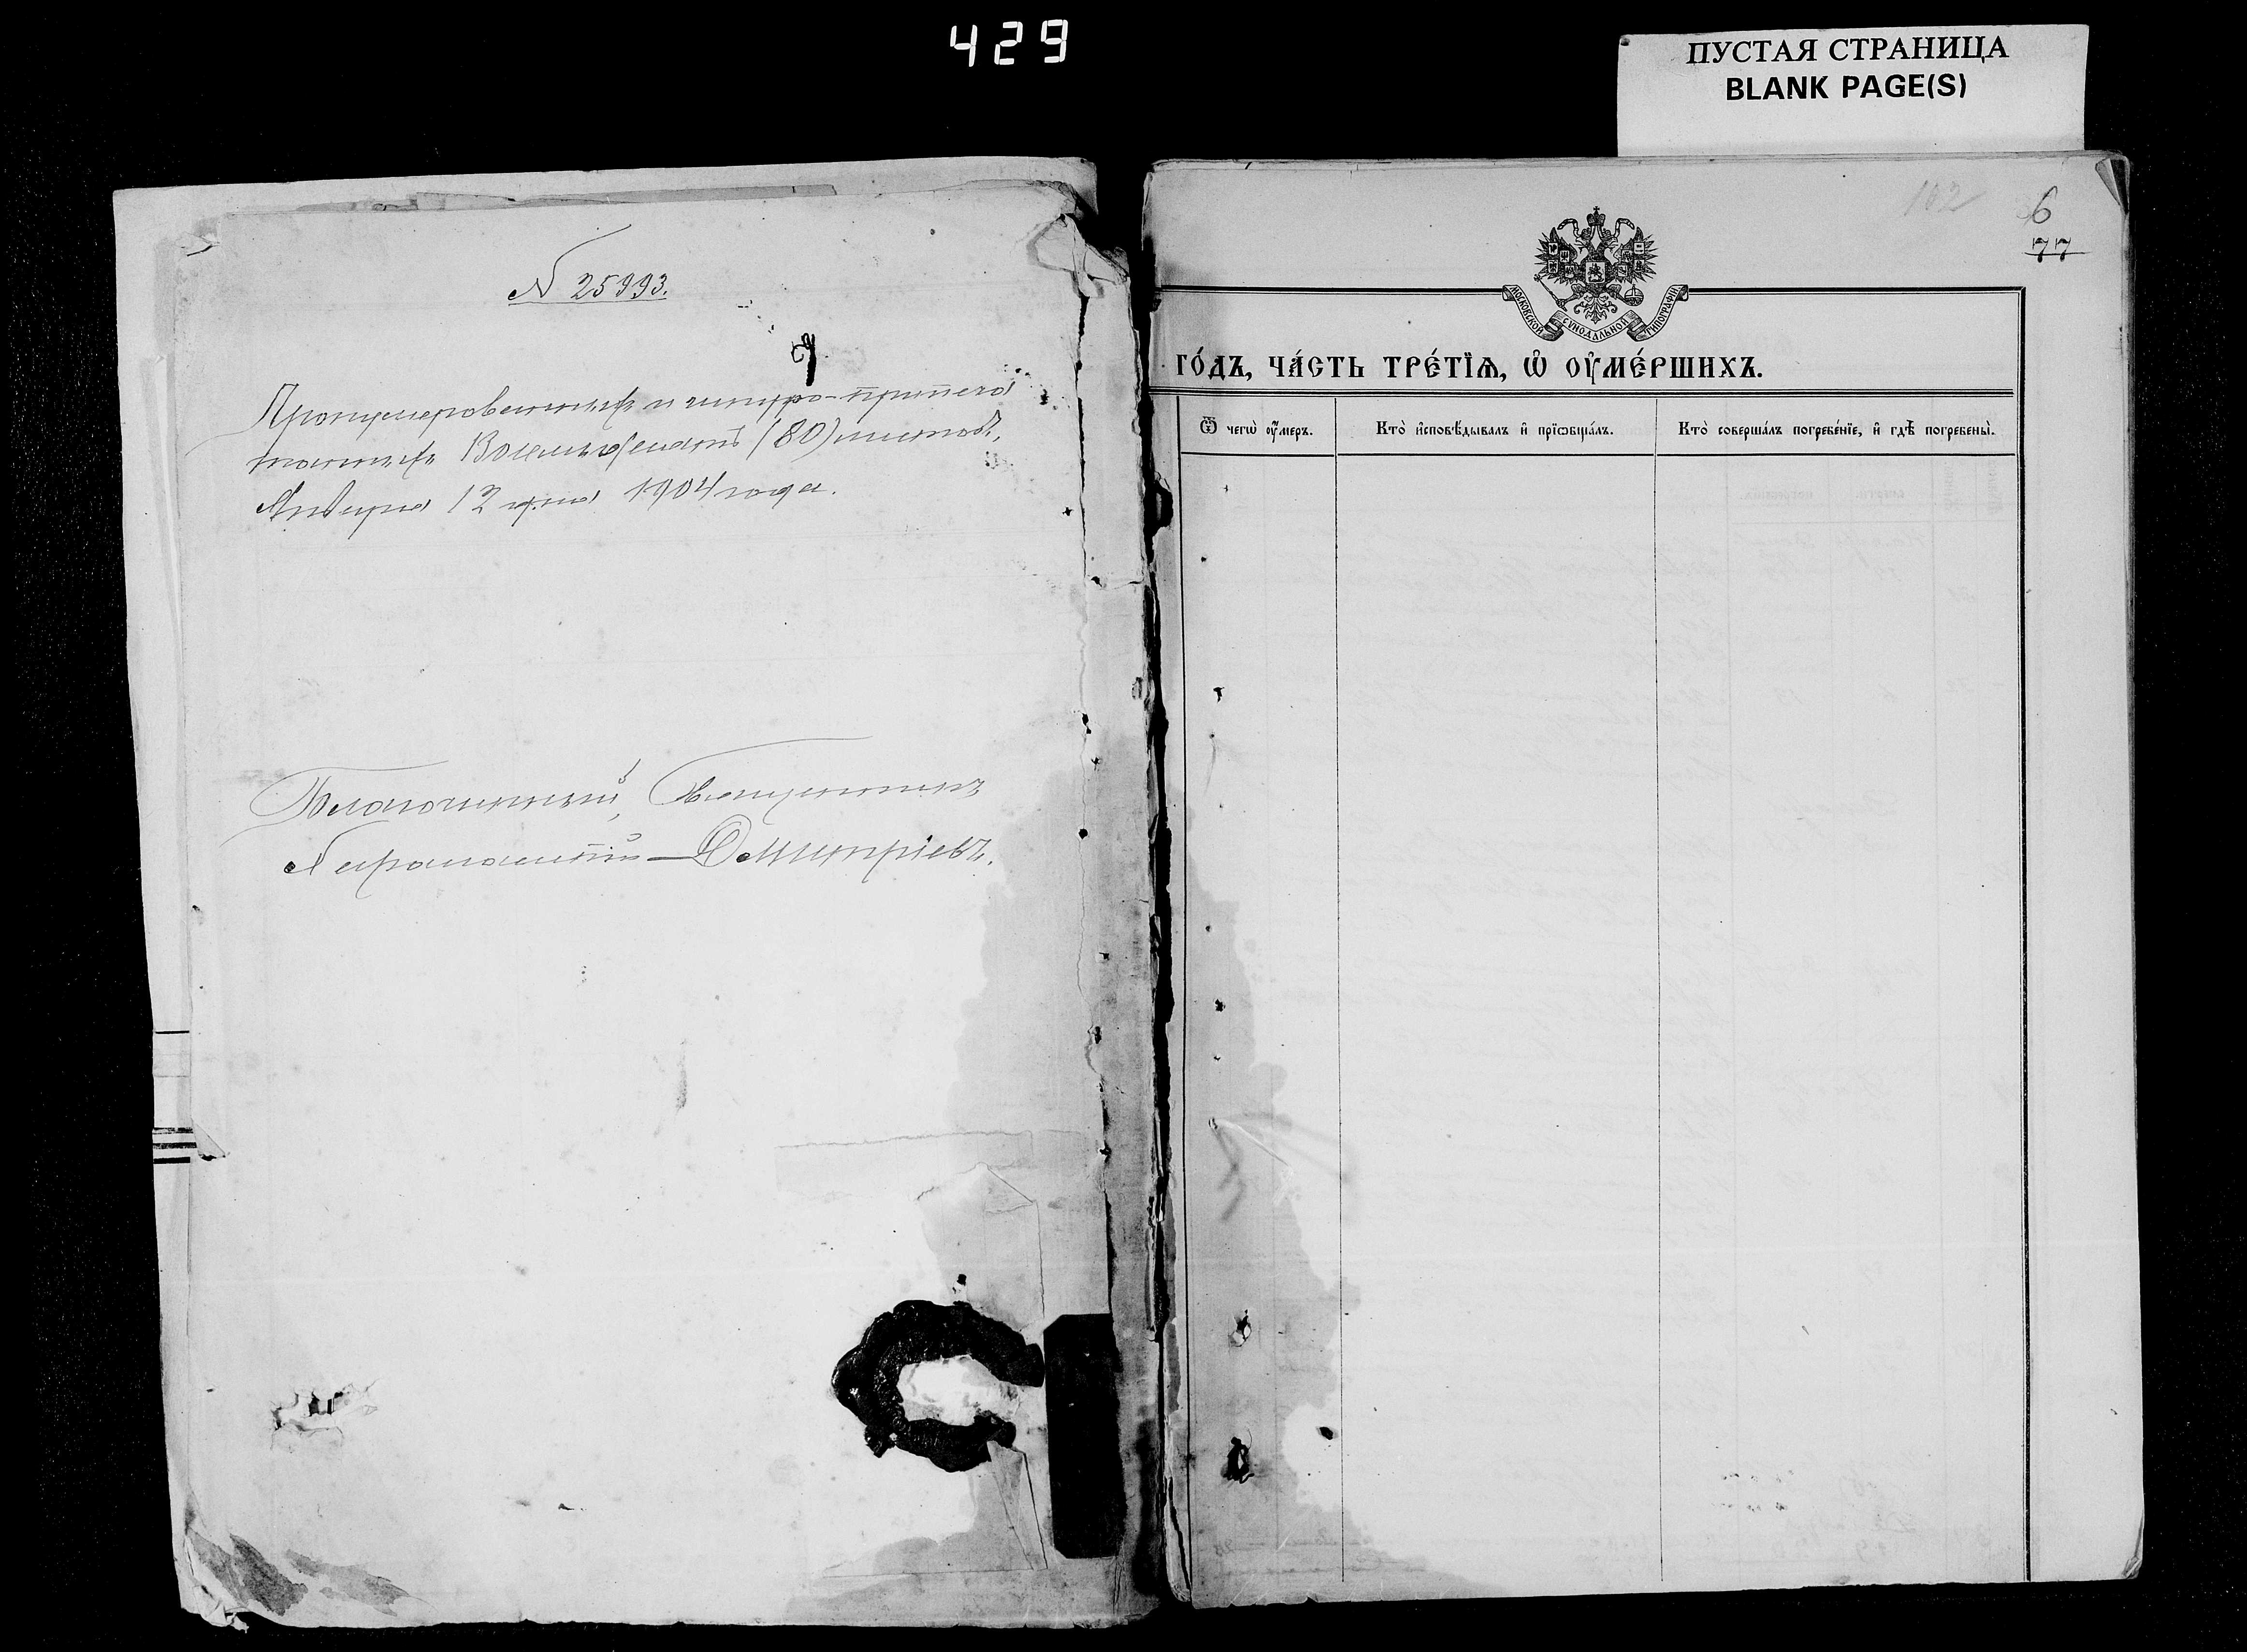 429
ПУСТАЯ СТРАНИЦА
BLANK PAGE(S)
№ 25993.
Пронумерованныхъ и шнуро-припеча
танныхъ Восемьдесятъ (80) листовъ.
Января 12 дня 1904 года.
Благочинный, Священникъ
Дмитріевъ.
102
6
77
МОСКОВСКОЙ СУНОДАЛЬНОЙ ТИПОГРАФІИ
ГО́ДЪ, ЧА́СТЬ ТРЕ́ТЇѦ, Ѡ҆ ОУ҆МЕ́РШИХЪ.
Ѿ чегѡ̀ оу҆́меръ.
Кто̀ и҆сповѣ́дывалъ и҆ прїѡбща́лъ.
Кто̀ соверша́лъ погребе́нїе, и҆ гдѣ̀ погребены̀.